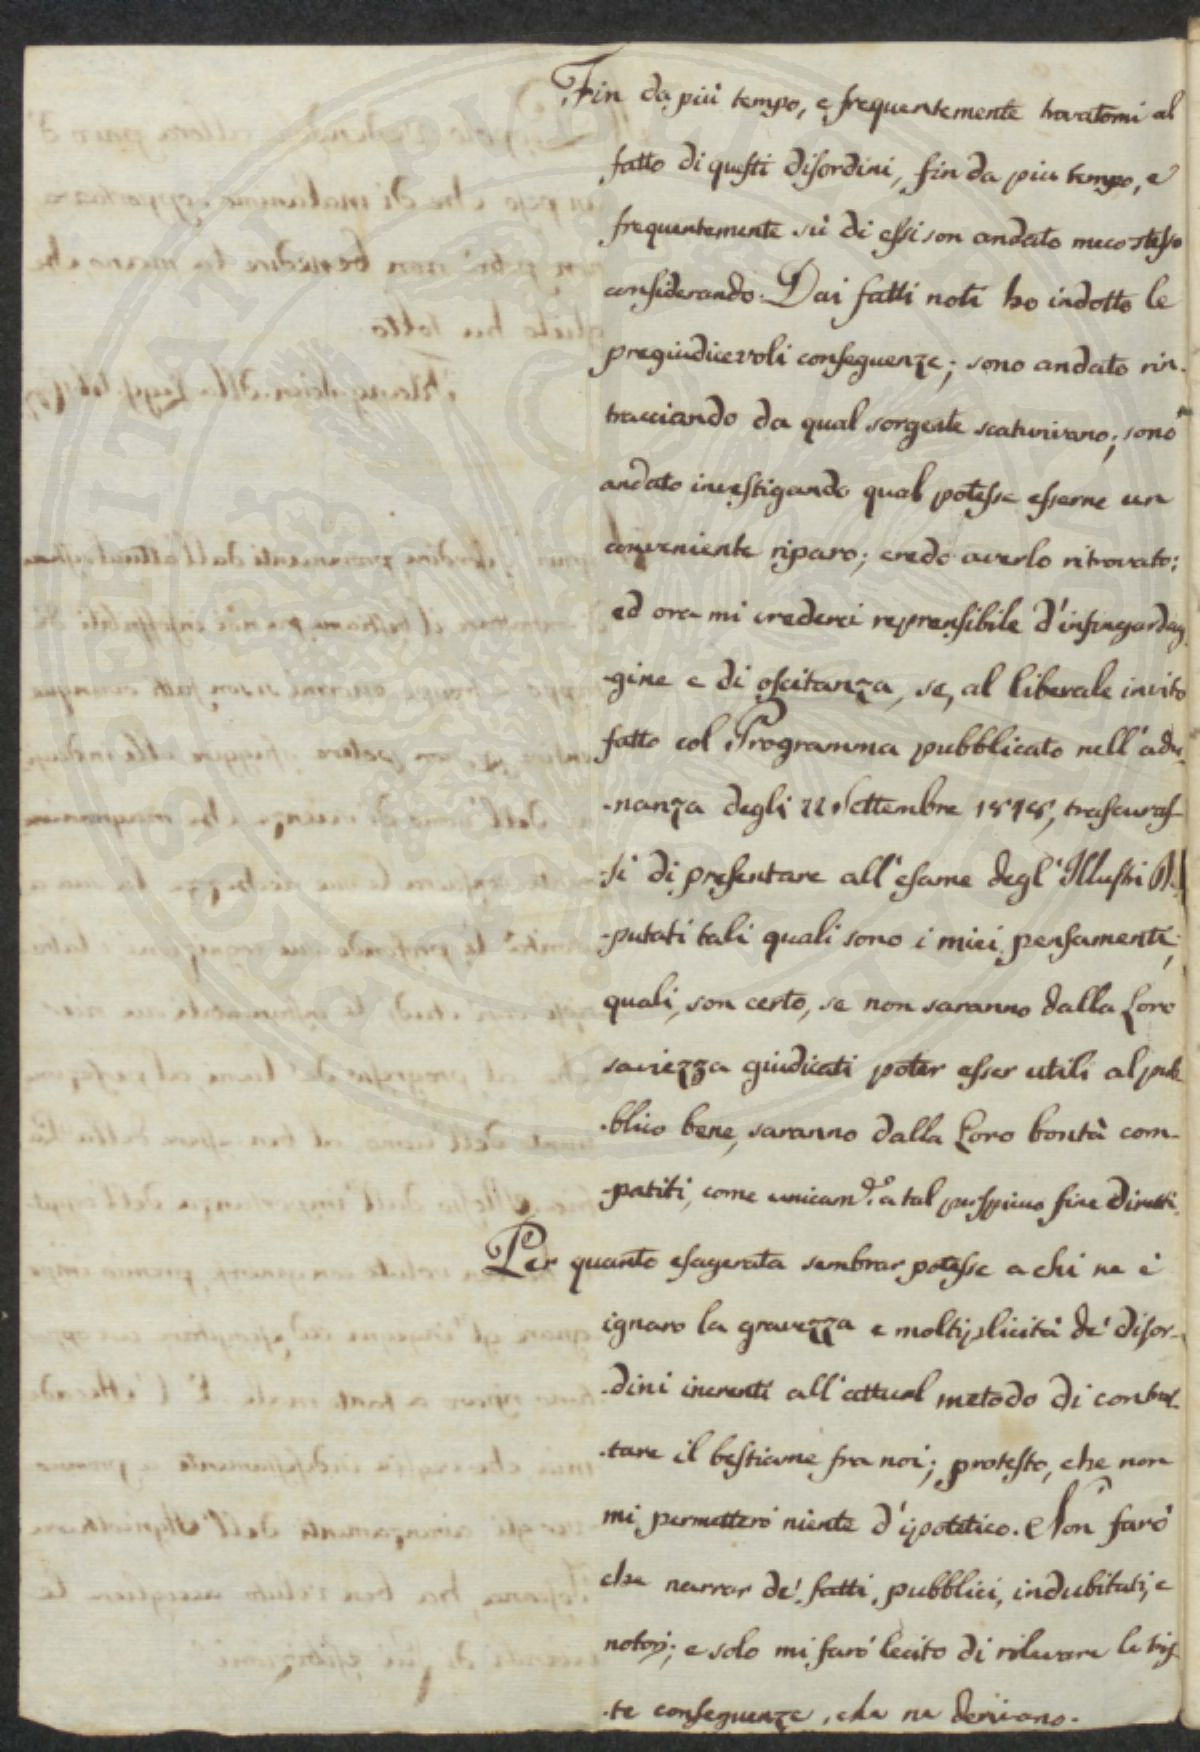 Fin da più tempo, e frequentemente trovatomi al
fatto di questi disordini, fin da più tempo, e
frequentemente sù di essi son andato meco stesso
considerando. Dai fatti noti ho indotto le
pregiudicevoli conseguenze; sono andato rin-
tracciando da qual sorgente scaturivano; sono
andato investigando qual potesse esserne un
conveniente riparo; credo averlo ritrovato;
ed ora mi crederei reprensibile d'infingardag
-gine e di oscitanza, se, al liberale invito
fatto col Programma pubblicato nell'adu
-nanza degli 11 Settembre 1818, trascuras-
-si di presentare all'esame degl'Illustri De
-putati tali quali sono i miei pensamenti;
quali, son certo, se non saranno dalla Loro
saviezza giudicati poter esser utili al pub
-blico bene, saranno dalla Loro bontà com-
-patiti, come unicam.e a tal fine diretti.
Per quanto esagerata sembrar potesse a chi ne è
ignaro la gravezza e moltiplicità de' disor-
-dini inerenti all'attual metodo di contrat-
-tare il bestiame fra noi; protesto, che non
mi permetterò niente d'ipotetico. Non farò
che narrar de' fatti, pubblici, indubitati, e
notorj; e solo mi farò lecito di rilevare le tris
-te conseguenze, che ne derivano.